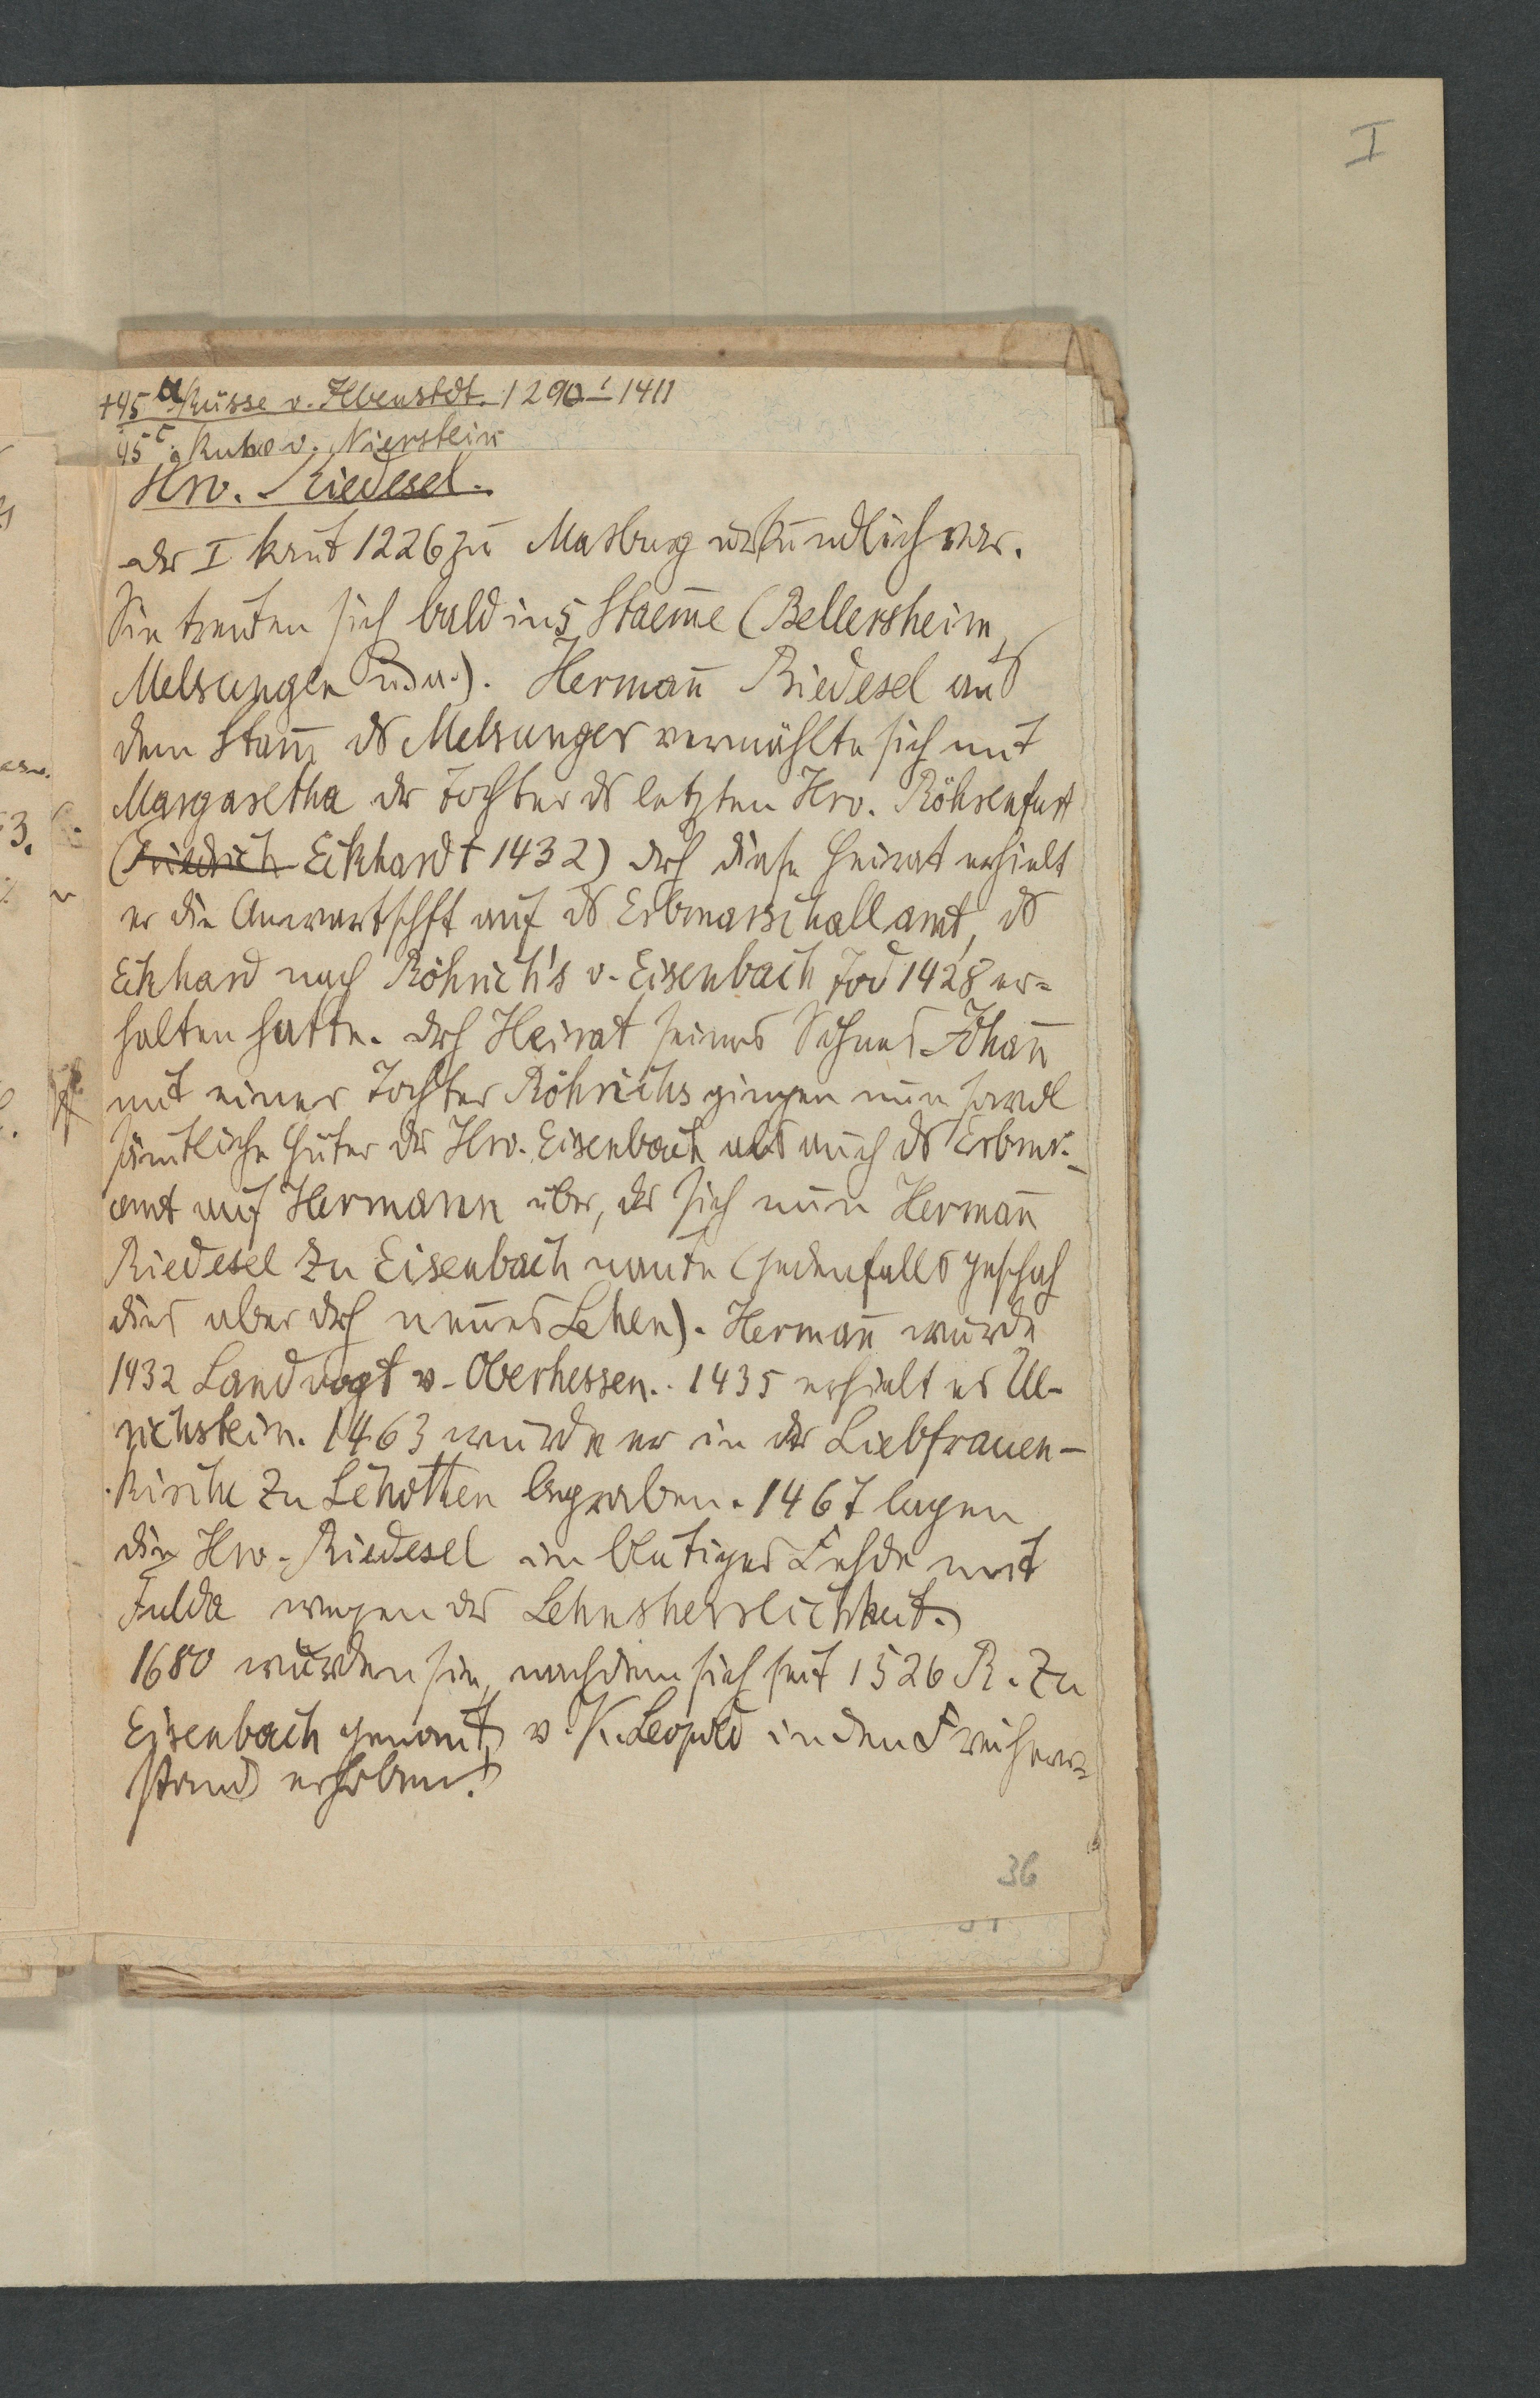 I
+45 a Russe v. Ilbenstdt. 1290-1411
45 c. Ruhe v. Nierstein
Hrn. Riedesel.
der I kmt 1226 zu Marburg urkundlich vor.
Sie trenten sich bald in 5 Staeme (Bellersheim,
Melsungen u. a.). Herman̄ Riedesel aus
dem Stam̄ ds Melsunger vermählte sich mit
Margaretha der Tochter ds letzten Hrn. Röhrenfurt
(Friedrich Eckhard † 1432) drch diese Heirat erhielt
er die Anwartschft auf ds Erbmarschallamt, ds
Eckhard nach Röhrich's v. Eisenbach Tod 1428 er=
halten hatte. drch Heirat seines Sohnes Johan̄
mit einer Tochter Röhrichs gingen nun sowol
sämtliche Güter der Hrn. Eisenbach als auch ds Erbmr.-
amt auf Hermann über, der sich nun Herman̄
Riedesel zu Eisenbach nante (jedenfalls geschah
dies aber drch neues Lehen). Herman̄ wurde
1432 Landvogt v. Oberhessen. 1435 erhielt er Ul-
richstein. 1463 wurde er in der Liebfrauen-
kirche zu Schotten begraben. 1467 lagen
die Hrn. Riedesel in blutiger Fehde mit
Fulda wegen der Lehnsherrlichkeit.
1680 wurden sie, nachdem sich seit 1526 R. zu
Eisenbach genant, v. K. Leopold in den Freiherrn=
stand erhoben.
36